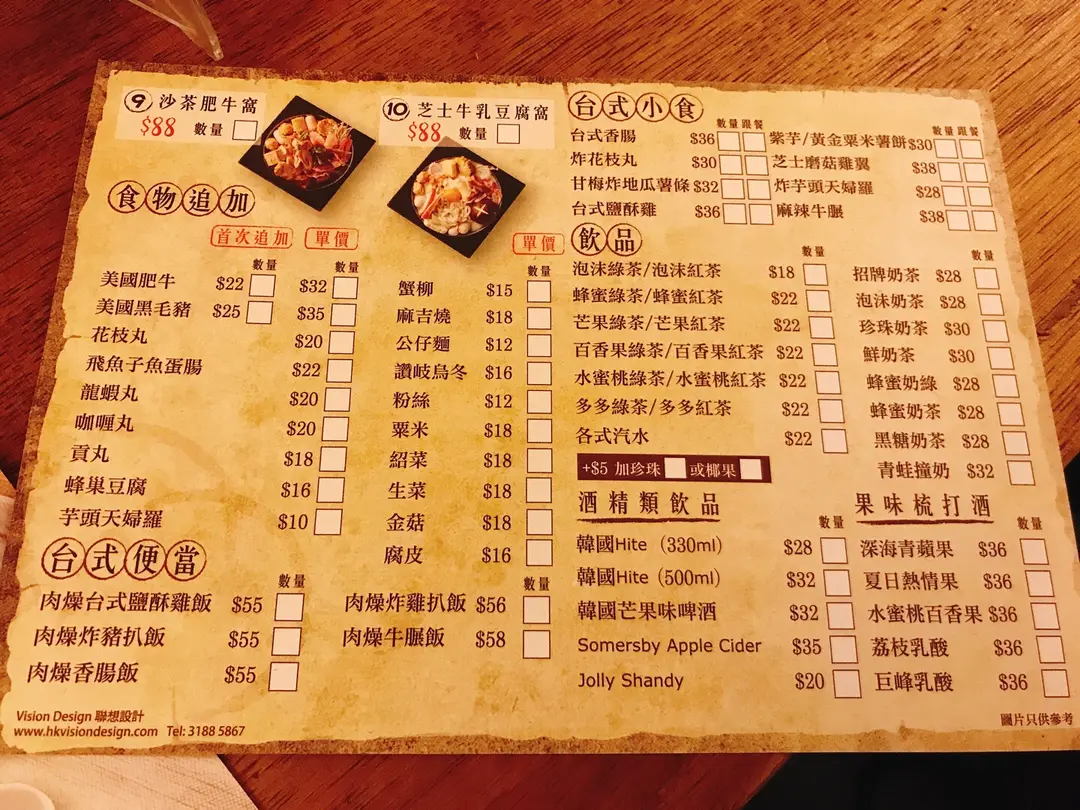 ⑨ 沙茶肥牛窩
$88 數量
⑩ 芝士牛乳豆腐窩
$88 數量
食物追加
首次追加 單價
數量 數量
美國肥牛 $22 $32
美國黑毛豬 $25 $35
花枝丸 $20
飛魚子魚蛋腸 $22
龍蝦丸 $20
咖喱丸 $20
貢丸 $18
蜂巢豆腐 $16
芋頭天婦羅 $10
單價
數量
蟹柳 $15
麻吉燒 $18
公仔麵 $12
讚岐烏冬 $16
粉絲 $12
粟米 $18
紹菜 $18
生菜 $18
金菇 $18
腐皮 $16
台式便當
數量
肉燥台式鹽酥雞飯 $55
肉燥炸豬扒飯 $55
肉燥香腸飯 $55
數量
肉燥炸雞扒飯 $56
肉燥牛腒飯 $58
Vision Design 聯想設計
www.hkvisiondesign.com Tel: 3188 5867
台式小食
數量 跟餐
台式香腸 $36
炸花枝丸 $30
甘梅炸地瓜薯條 $32
台式鹽酥雞 $36
數量 跟餐
紫芋/黃金粟米薯餅 $30
芝士蘑菇雞翼 $38
炸芋頭天婦羅 $28
麻辣牛腒 $38
飲品
數量
泡沫綠茶/泡沫紅茶 $18
蜂蜜綠茶/蜂蜜紅茶 $22
芒果綠茶/芒果紅茶 $22
百香果綠茶/百香果紅茶 $22
水蜜桃綠茶/水蜜桃紅茶 $22
多多綠茶/多多紅茶 $22
各式汽水 $22
+$5 加珍珠 或椰果
數量
招牌奶茶 $28
泡沫奶茶 $28
珍珠奶茶 $30
鮮奶茶 $30
蜂蜜奶綠 $28
蜂蜜奶茶 $28
黑糖奶茶 $28
青蛙撞奶 $32
酒精類飲品
數量
韓國Hite（330ml） $28
韓國Hite（500ml） $32
韓國芒果味啤酒 $32
Somersby Apple Cider $35
Jolly Shandy $20
果味梳打酒
數量
深海青蘋果 $36
夏日熱情果 $36
水蜜桃百香果 $36
荔枝乳酸 $36
巨峰乳酸 $36
圖片只供參考